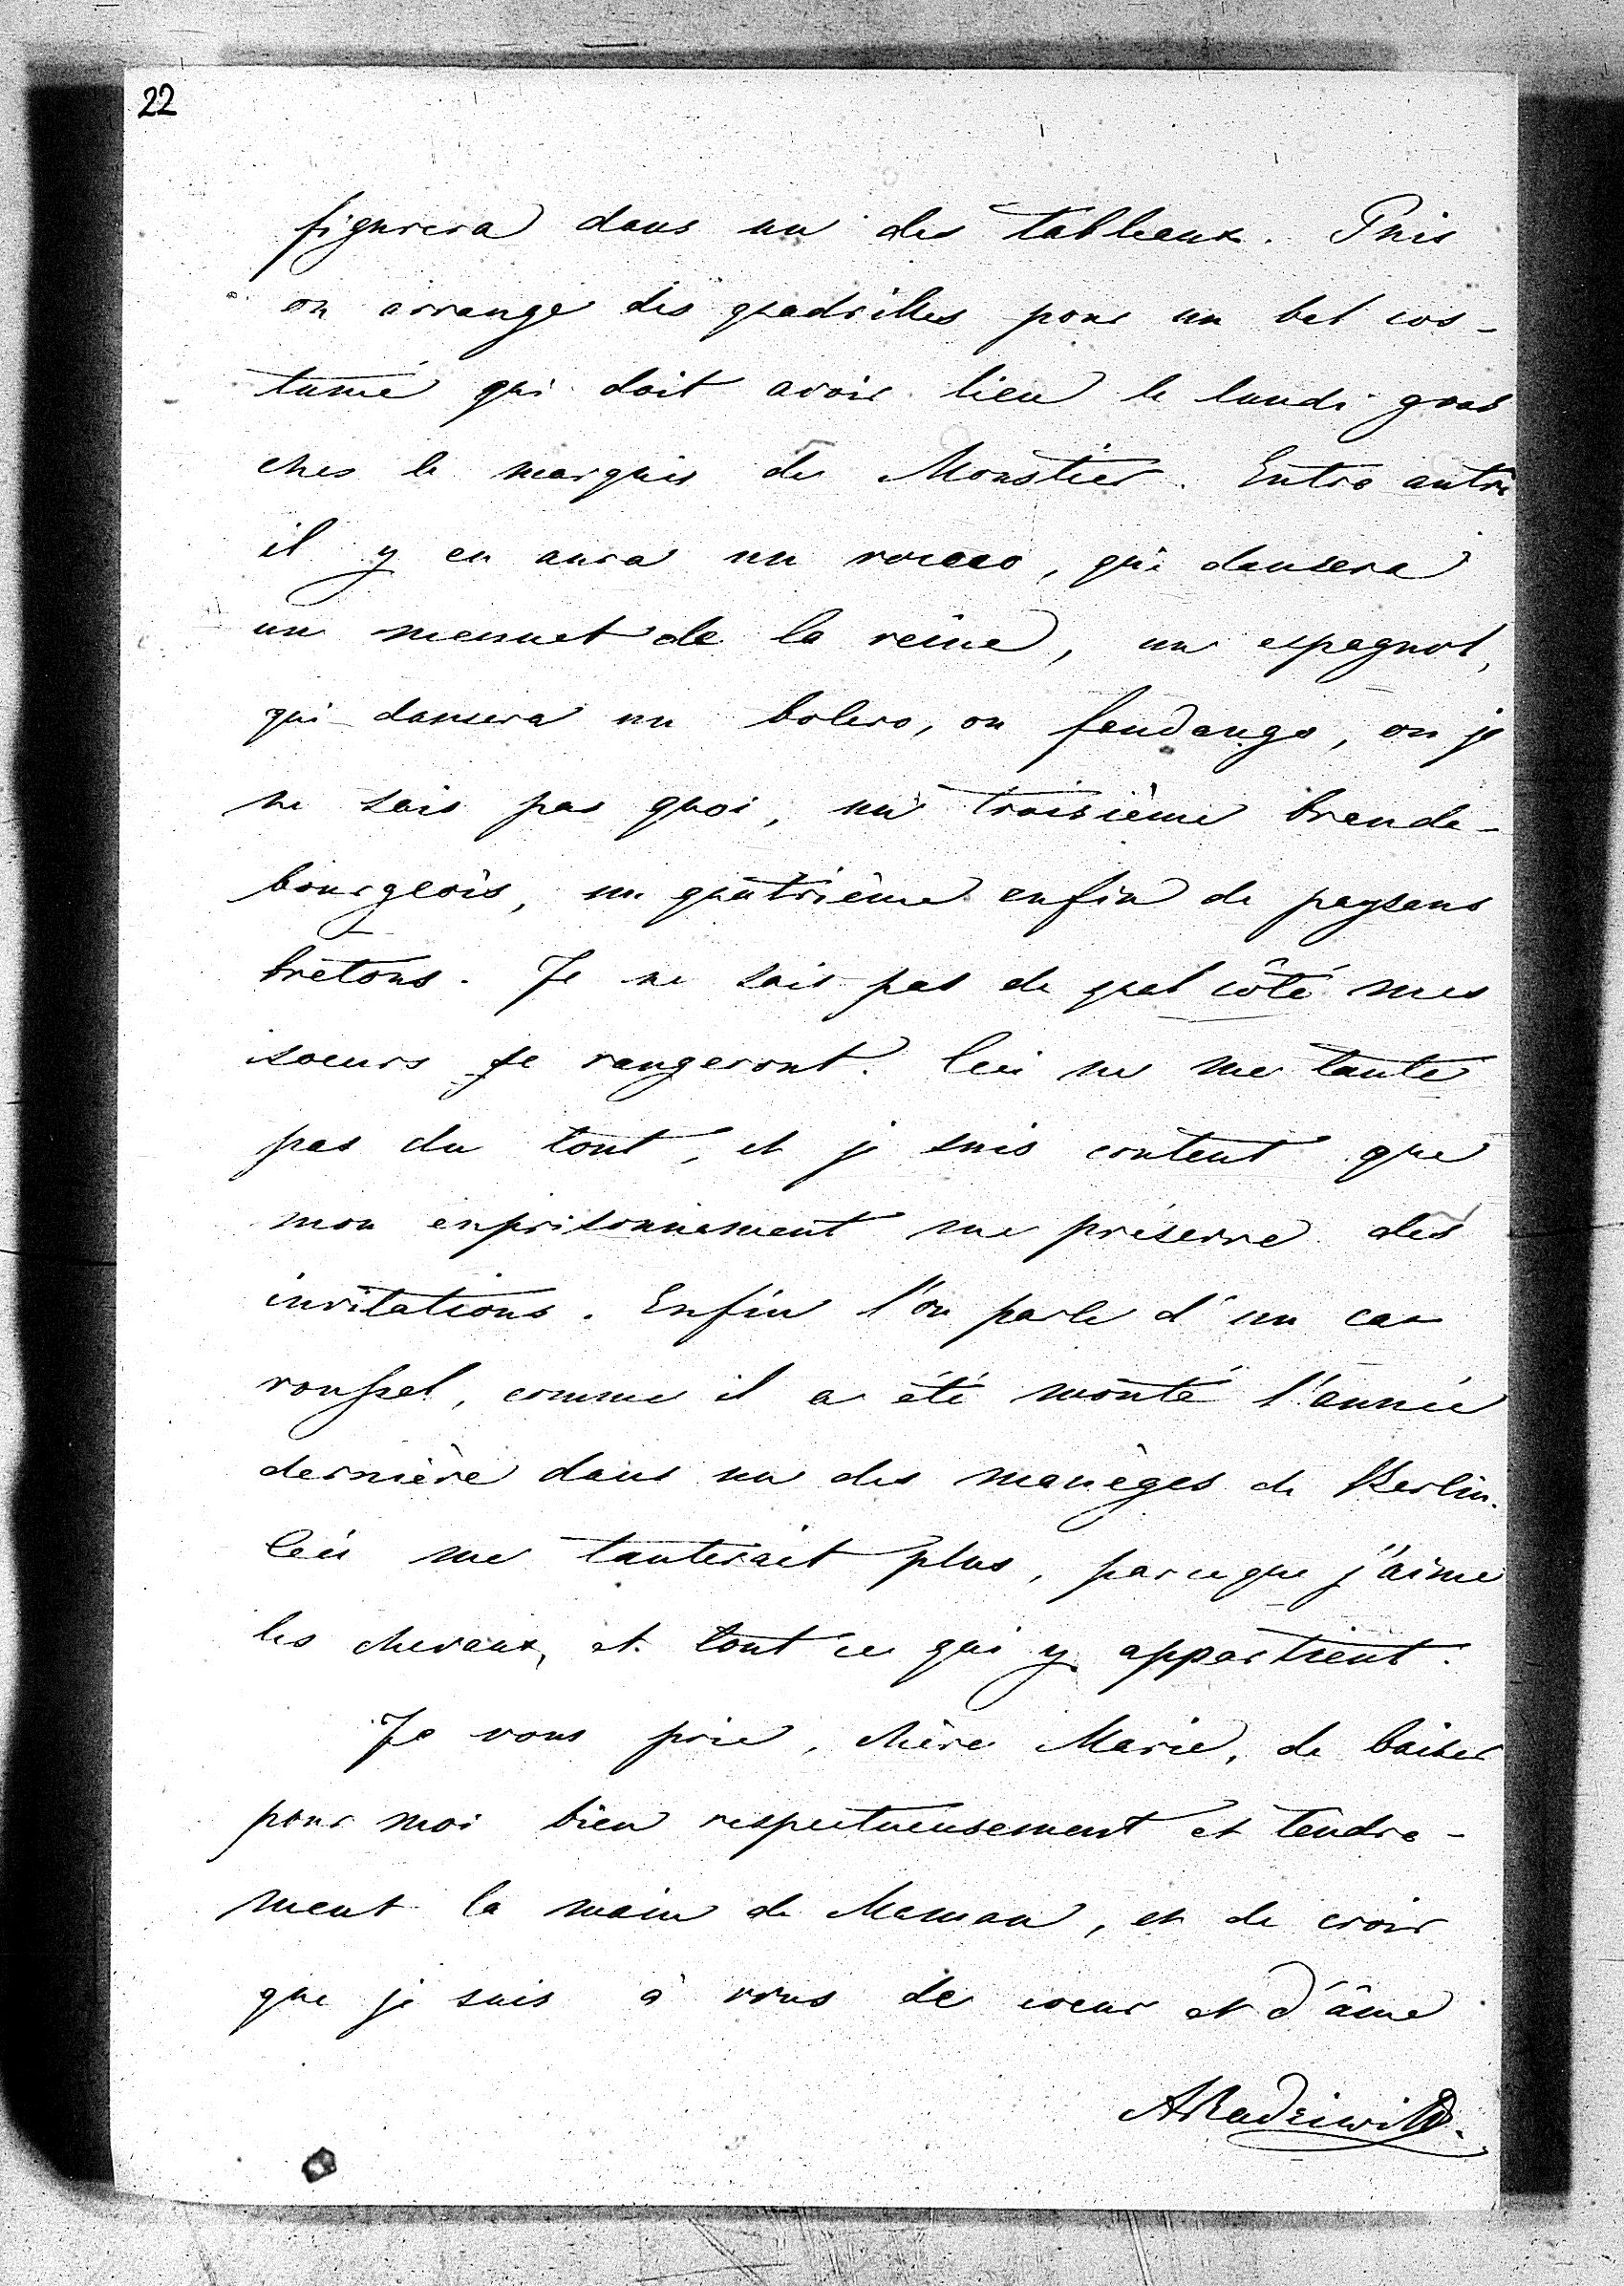 22
figurera dans un des tableaux. Puis
on arrange des quadrilles pour un bal cos-
tumé qui doit avoir lieu le lundi gras
chez le marquis de Moustier. Entre autre
il y en aura un rococo, qui dansera
un menuet de la reine, un espagnol,
qui dansera un bolero, ou fandango, ou je
ne sais pas quoi, un troisième brande-
bourgeois, un quatrième enfin de paysans
bretons. Je ne sais pas de quel côté mes
soeurs se rangeront. Ceci ne me tante
pas du tout, et je suis content que
mon enprisonnement me préserve des
invitations. Enfin l'on parle d'un car
roussel, comme il a été monté l'année
dernière dans un des manèges de Berlin.
Ceci me tanterait plus, parceque j'aime
les chevaux, et tout ce qui y appartient.
Je vous prie, chère Marie, de baiser
pour moi bien respectueusement et tendre-
ment la main de Maman, et de croir
que je suis à vous de coeur et d'âme
ARadziwill.